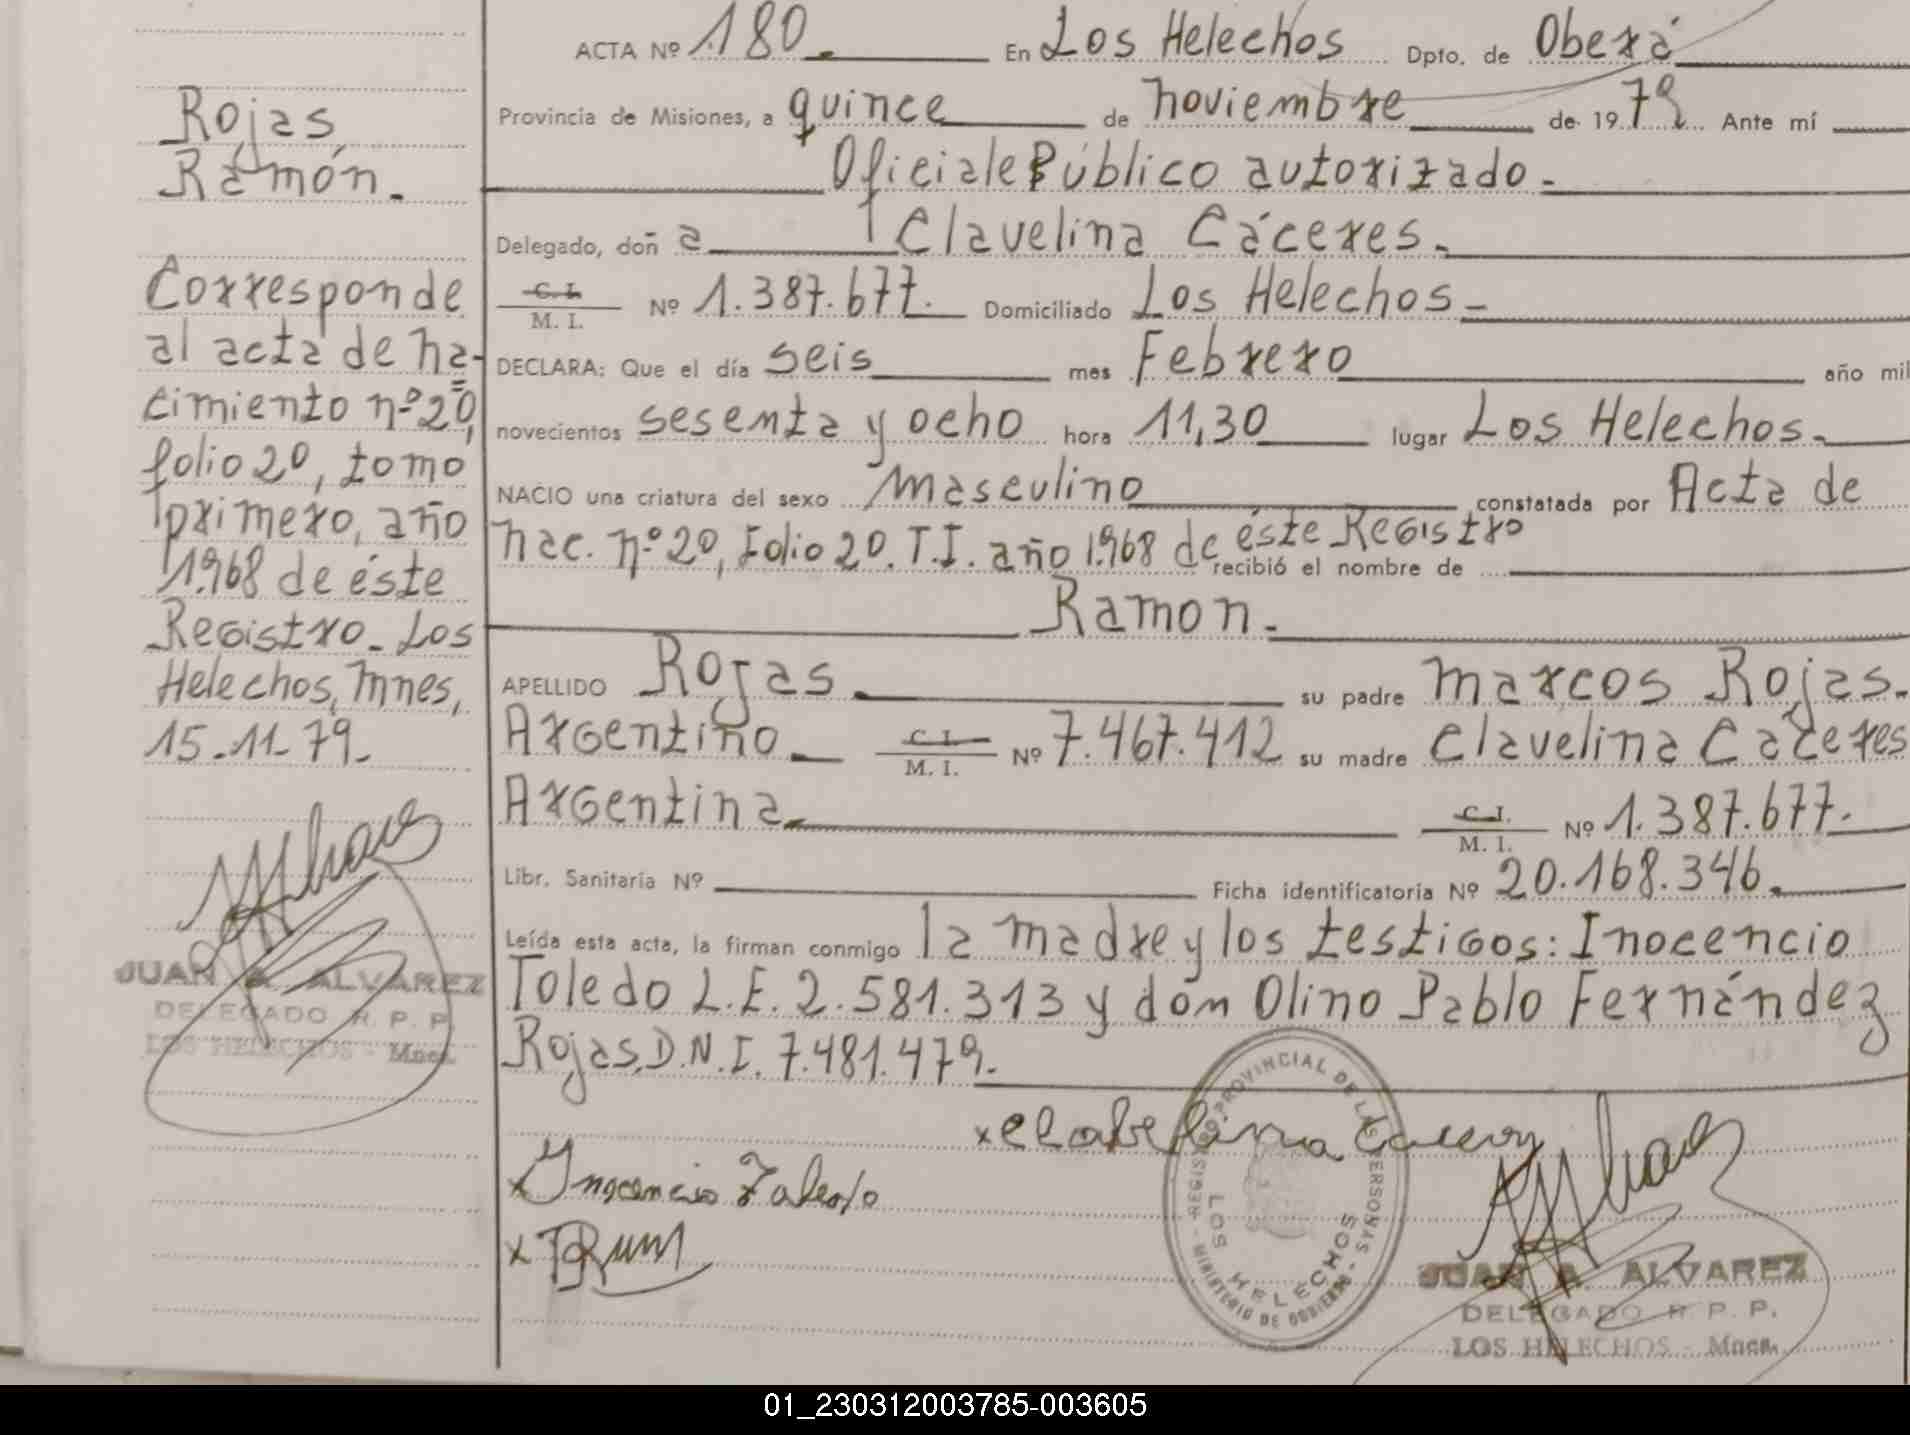 Rojas
Ramón.-
Corresponde
al acta de na-
cimiento nº 20,
folio 20, tomo
primero, año
1.968 de éste
Registro - Los
Helechos, Mnes,
15-11-79.-
JUAN A. ALVAREZ
DELEGADO R. P. P.
LOS HELECHOS - Mnes.
ACTA Nº 180.- En Los Helechos Dpto. de Oberá
Provincia de Misiones, a quince de noviembre de 1979 Ante mí
Oficial Público autorizado.-
Delegado, doña Clavelina Cáceres.-
C. I.
M. I. Nº 1.387.677. Domiciliado Los Helechos-
DECLARA: Que el día seis mes Febrero año mil
novecientos sesenta y ocho hora 11,30 lugar Los Helechos.-
NACIO una criatura del sexo masculino constatada por Acta de
nac. nº 20, Folio 20. T.I. año 1.968 de éste Registro
recibió el nombre de
Ramon.-
APELLIDO Rojas.- su padre Marcos Rojas.-
Argentino.- C. I. M. I. Nº 7.467.412 su madre Clavelina Cáceres
Argentina.- C. I. M. I. Nº 1.387.677.
Libr. Sanitaria Nº Ficha identificatoria Nº 20.168.346.-
Leída esta acta, la firman conmigo la madre y los testigos: Inocencio
Toledo L.E. 2.581.313 y don Olino Pablo Fernández
Rojas, D.N.I. 7.481.479.-
x Inocencio Toledo
x
REGISTRO PROVINCIAL DE LAS PERSONAS - MINISTERIO DE GOBIERNO -
LOS HELECHOS
JUAN A. ALVAREZ
DELEGADO R. P. P.
LOS HELECHOS - Mnes.
01_230312003785-003605